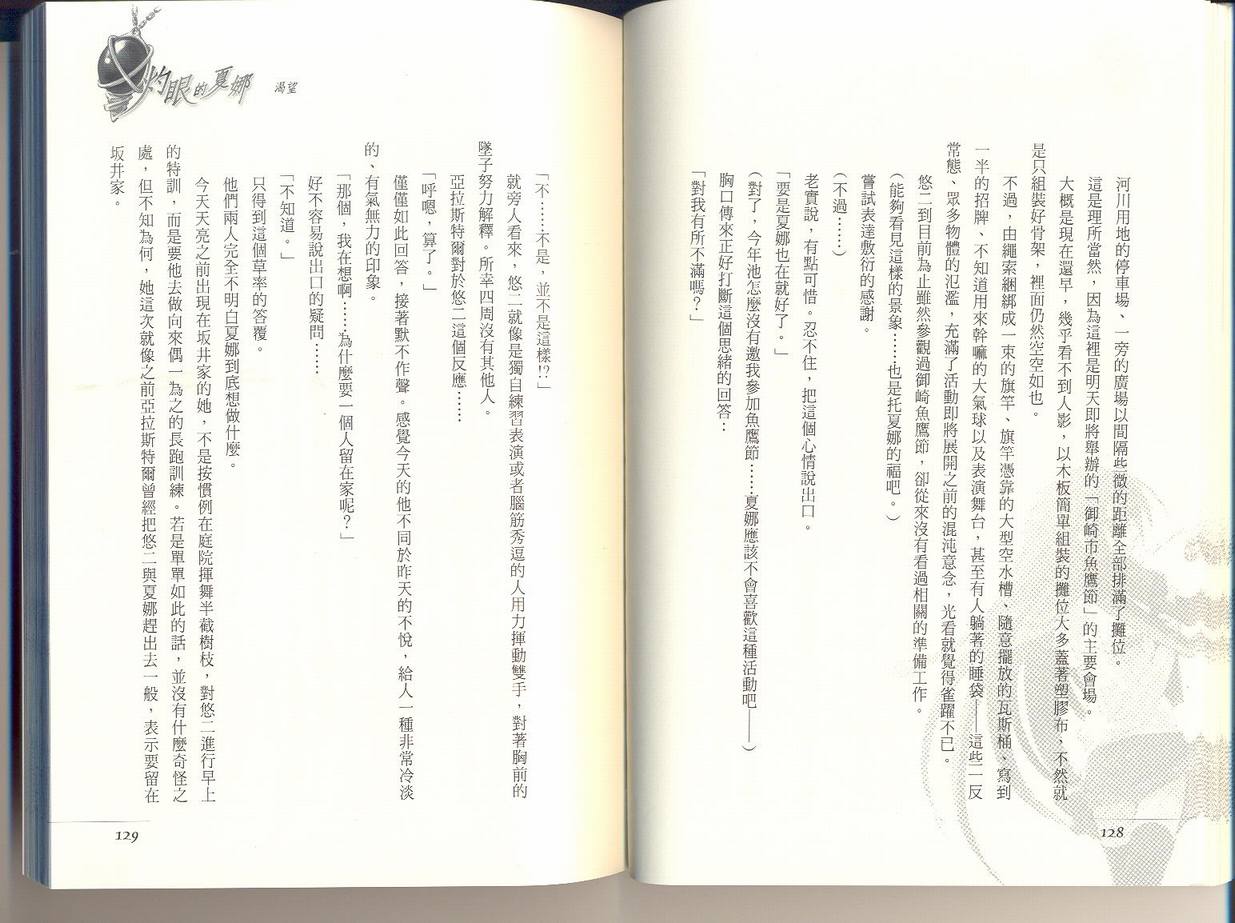 河川用地的停車場、一旁的廣場以間隔些微的距離全部排滿了攤位。
這是理所當然，因為這裡是明天即將舉辦的「御崎市魚鷹節」的主要會場。
大概是現在還早，幾乎看不到人影，以木板簡單組裝的攤位大多蓋著塑膠布，不然就
是只組裝好骨架，裡面仍然空空如也。
不過，由繩索綑綁成一束的旗竿、旗竿憑靠的大型空水槽、隨意擺放的瓦斯桶、寫到
一半的招牌、不知道用來幹嘛的大氣球以及表演舞台，甚至有人躺著的睡袋——這些一反
常態、眾多物體的氾濫，充滿了活動即將展開之前的混沌意念，光看就覺得雀躍不已。
悠二到目前為止雖然參觀過御崎魚鷹節，卻從來沒有看過相關的準備工作。
（能夠看見這樣的景象……也是托夏娜的福吧。）
嘗試表達敷衍的感謝。
（不過……）
老實說，有點可惜。忍不住，把這個心情說出口。
「要是夏娜也在就好了。」
（對了，今年池怎麼沒有邀我參加魚鷹節……夏娜應該不會喜歡這種活動吧——）
胸口傳來正好打斷這個思緒的回答：
「對我有所不滿嗎？」
128
灼眼的夏娜 渴望
「不……不是，並不是這樣!?」
就旁人看來，悠二就像是獨自練習表演或者腦筋秀逗的人用力揮動雙手，對著胸前的
墜子努力解釋。所幸四周沒有其他人。
亞拉斯特爾對於悠二這個反應……
「呼嗯，算了。」
僅僅如此回答，接著默不作聲。感覺今天的他不同於昨天的不悅，給人一種非常冷淡
的、有氣無力的印象。
「那個，我在想啊……為什麼要一個人留在家呢？」
好不容易說出口的疑問……
「不知道。」
只得到這個草率的答覆。
他們兩人完全不明白夏娜到底想做什麼。
今天天亮之前出現在坂井家的她，不是按慣例在庭院揮舞半截樹枝，對悠二進行早上
的特訓，而是要他去做向來偶一為之的長跑訓練。若是單單如此的話，並沒有什麼奇怪之
處，但不知為何，她這次就像之前亞拉斯特爾曾經把悠二與夏娜趕出去一般，表示要留在
坂井家。
129